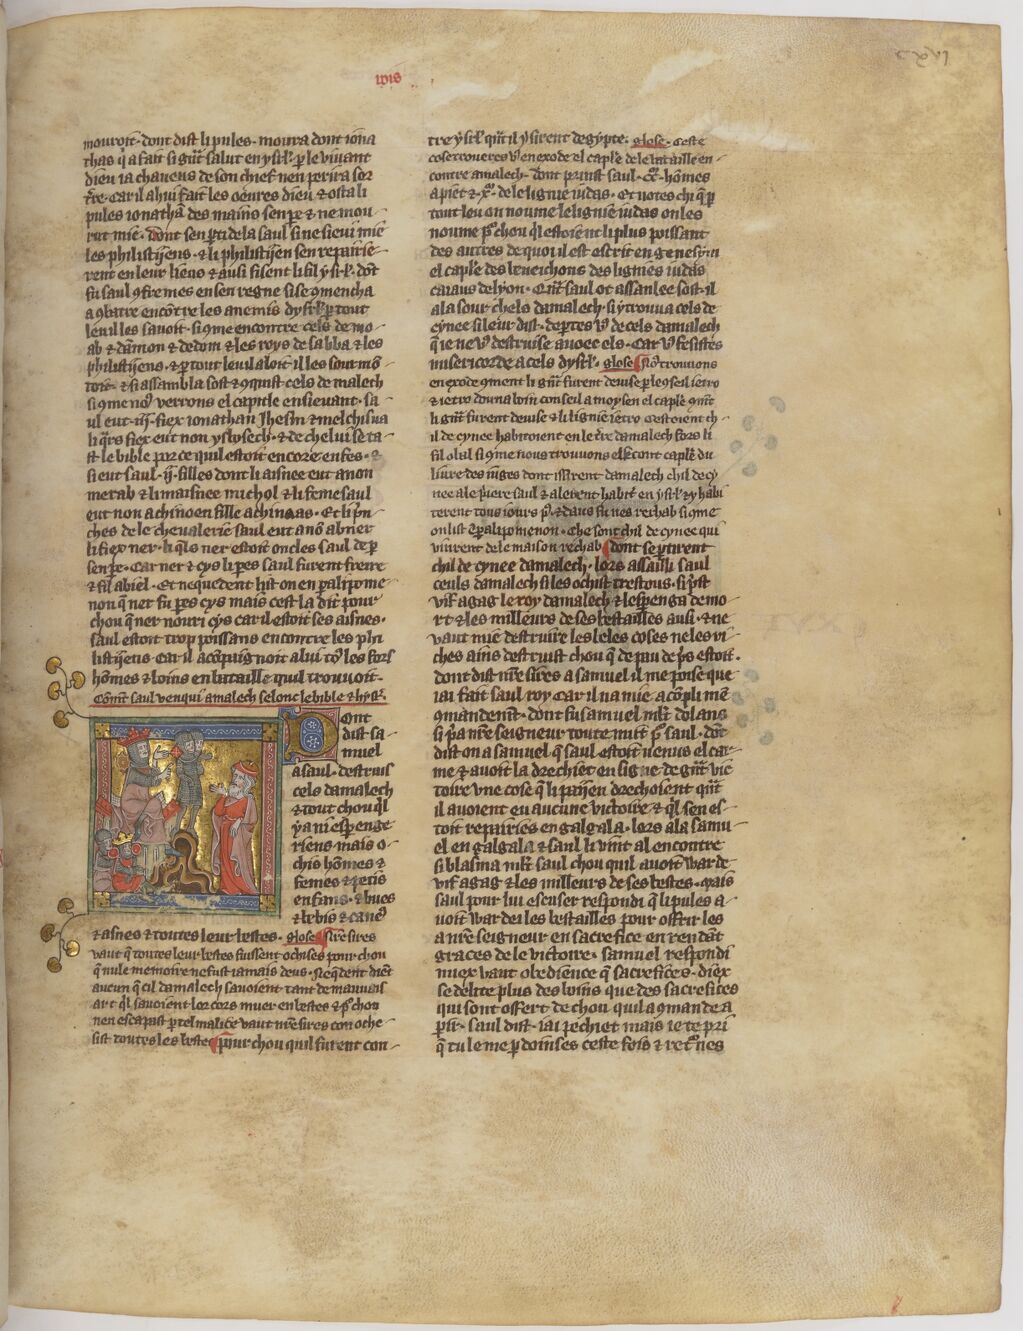 mouroit. dont dist li pules. moura dont iona
thas q̄ a fait si gr̄t salut en ysrl'. p̄ le viuant
dieu ia chaueus de son chief nen perira sor
t̄re. car il a hui fait les oeures dieu & osta li
pules ionathā des mains sen pe & ne mou
rut mie. dont sen pti de la saul si ne sieui mie
les philistijens. & li philistijen sen repairie
rent en leur lieus & ausi fisent li fil ysrl'. dōt
fu saul 9fremes en sen regne si se 9mencha
a 9batre encōtre les anemis dysrl' p tout
les illes sauoir. si 9me encontre cels de mo
ab & dāmon & dedom & les roys de sabba & les
philistijens. & p tout leu il aloit il les sourmō
toit. & si assambla sost & 9quist cels de malech
si 9me no9 verrons el capitle ensieuant. sa
ul eut .iij. fiex ionathan Jhesin & melchisua
li q̄rs fiex eut non ysbysech. & de chelui se ta
ist le bible por ce quil estoit encore enfes. &
si eut saul .ij. filles dont li aisnee eut anon
merab & li maisnee michol & li feme saul
eut non achinoen fille achinaas. Et li pn
ches de le cheualerie saul eut anō abner
li fiex ner. li qls ner estoit oncles saul de p
sen pe. Car ner & cys li pes saul furent frere
& fil abiel. Et nequedent list on en palipome
non q̄ ner fu pes cys mais cest la dit pour
chou q̄ ner nouri cys car il estoit ses aisnes.
saul estoit trop poissans encontre les phi
listijens. car il acōpaignoit a lui to9 les fors
hōmes & boins en bataille quil trouuoit.
Cōmt saul venqui amalech selonc le bible & hystr.
Dont
dist sa
muel
a saul. destruis
cels damalech
& tout chou ql
y a ni espenge
riens mais o
chis hōmes &
femes & petis
enfans. & bues
& brebis &
& asnes & toutes leur bestes. glose nre sires
vaut q̄ toutes leur bestes fuissent ochises pour chou
q̄ nule memoire ne fust iamais deus. Nequedent diēt
aucun q̄ cil damalech sauoient tant de mauuais
art ql sauoient lor cors muer en bestes & p̄ chou
nen escapast p tel malice vaut nre sires con oche
sist toutes les bestes pour chou quil furent con
tre ysrl' qn̄t il ysirent degypte. glose. ceste
cose troueres vo9 en exode el caple de le bataille en
contre amalech. dont prinst saul hōmes
a piet & .x. de le lignie iudas. Et notes chi q̄ p
tout leu on noume le lignie iudas on les
noume p̄ chou ql estoient li plus poissant
des autres de quoi il est escrit en genesym
el caple des beneichons des lignies iudas
caiaus de lyon. Qn̄t saul ot assanlee sost il
ala sour chels damalech. si y trouua cels de
cynee si leur dist. deptes vo9 de cels damalech
q̄ ie ne vo9 destruise auoec els. Car vo9 fesistes
misericorde a cels dysrl'. glose no9 trouuons
en exode 9ment li gn̄t furent deuise p le 9seil ietro
& ietro douna boin conseil a moysen el caple 9mt
li gn̄t furent deuise & li lignie ietro cestoient ch
il de cynee habitoient en le t̄re damalech fors li
fil obul si 9me nous trouuons el caple du
liure des iuges dont issirent damalech chil de cy
nee ale priere saul & alerent habit̄ en ysrl' & y habi
terent tous iours & daus fu nes rechab si 9me
on list  en palipomenon. Che sont chil de cynee qui
vinrent de le maison rechab dont se ptirent
chil de cynee damalech. lors assailli saul
ceuls damalech si les ochist trestous. si pst
vif agag le roy damalech & lespenga de mo
rt & les milleurs de ses bestailles ausi. & ne
vaut mie destruire les beles coses ne les ri
ches ains destruist chou q̄ de pau de pis estoit.
dont dist nre sires a samuel il me poise que
iai fait saul roy. car il na mie acōpli mē
9mandemt. dont fu samuel mlt dolans
si pa nre seigneur toute nuit p̄ saul. dōt
dist on a samuel q̄ saul estoit uenus el car
me & auoit la drechiet en signe de gn̄t vic
toire vne cose q̄ li paijen drechoient qn̄t
il auoient eu aucune victoire & ql sen es
toit repairies en galgala. lors ala samu
el en galgala & saul li vint al encontre
si blasma mlt saul chou quil auoit warde
vif agag & les milleurs de ses bestes. mais
saul pour lui escuser respondi q̄ li pules a
uoit warde les bestailles pour offrir les
a nre seigneur en sacrefice en rendāt
graces de le victoire. samuel respondi
miex vaut obedience q̄ sacrefices. diex
se delite plus des boins que des sacrefices
qui sont offert de chou quil a 9mande a
psir. saul dist. iai pechiet mais ie te pri
q̄ tu le me pdoinses ceste fois & ret9nes